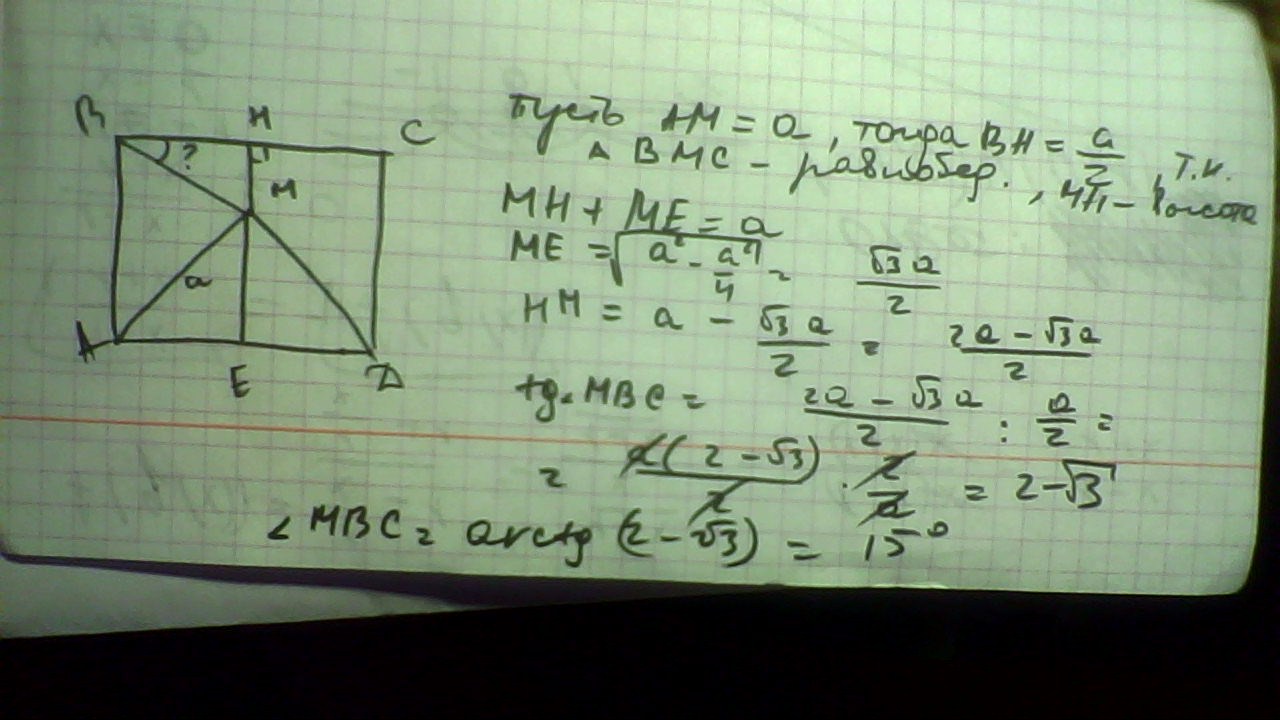 B H C
? M
a
A E D
Пусть AM = a, тогда BH = a/2, т.к.
△ BMC – равнобед., MH – высота
MH + ME = a
ME = √(a² - a²/4) = √3 a/2
HM = a - √3 a/2 = 2a - √3 a/2
tg∠MBC = 2a - √3 a/2 : a/2 =
= a(2 - √3)/2 · 2/a = 2-√3
∠MBC = arctg (2-√3) = 15°